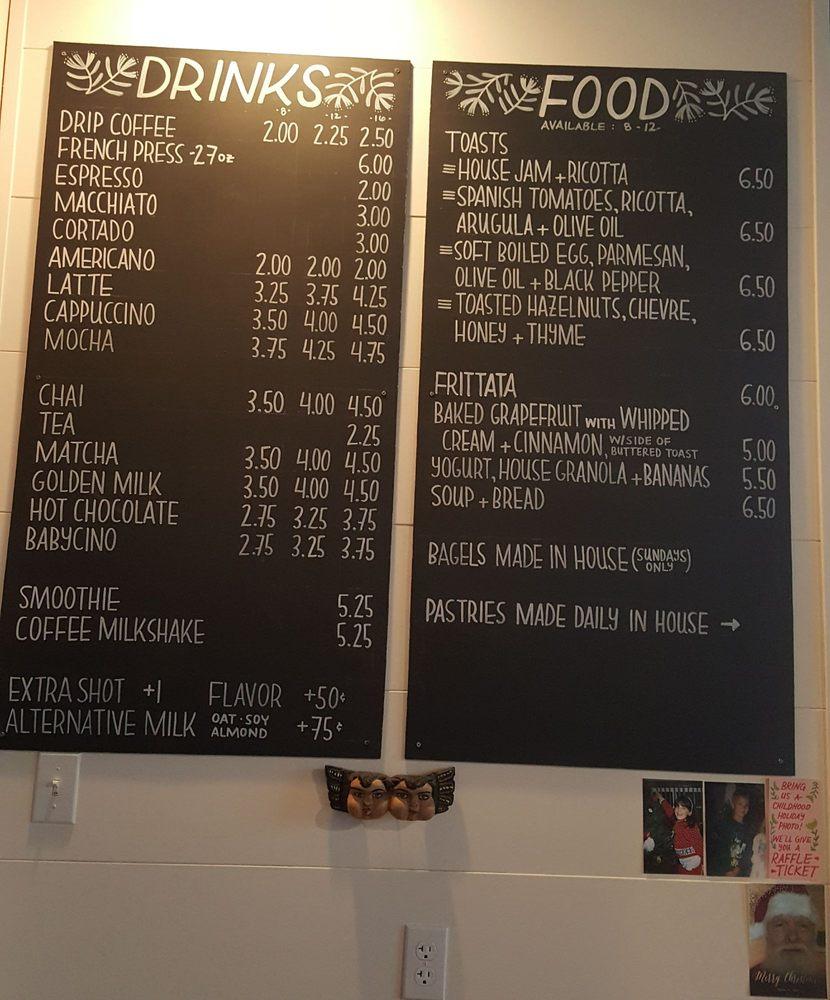 DRINKS
-8- -12- -16-
DRIP COFFEE 2.00 2.25 2.50
FRENCH PRESS -27oz 6.00
ESPRESSO 2.00
MACCHIATO 3.00
CORTADO 3.00
AMERICANO 2.00 2.00 2.00
LATTE 3.25 3.75 4.25
CAPPUCCINO 3.50 4.00 4.50
MOCHA 3.75 4.25 4.75
CHAI 3.50 4.00 4.50
TEA 2.25
MATCHA 3.50 4.00 4.50
GOLDEN MILK 3.50 4.00 4.50
HOT CHOCOLATE 2.75 3.25 3.75
BABYCINO 2.75 3.25 3.75
SMOOTHIE 5.25
COFFEE MILKSHAKE 5.25
EXTRA SHOT +1 FLAVOR +50¢
ALTERNATIVE MILK OAT·SOY ALMOND +75¢
FOOD
AVAILABLE: 8-12-
TOASTS
≡HOUSE JAM+RICOTTA 6.50
≡SPANISH TOMATOES, RICOTTA,
ARUGULA+OLIVE OIL 6.50
≡SOFT BOILED EGG, PARMESAN,
OLIVE OIL+BLACK PEPPER 6.50
≡TOASTED HAZELNUTS, CHEVRE,
HONEY+THYME 6.50
FRITTATA 6.00
BAKED GRAPEFRUIT WITH WHIPPED
CREAM+CINNAMON, W/SIDE OF BUTTERED TOAST 5.00
YOGURT, HOUSE GRANOLA+BANANAS 5.50
SOUP+BREAD 6.50
BAGELS MADE IN HOUSE (SUNDAYS ONLY)
PASTRIES MADE DAILY IN HOUSE →
BRING
US A
CHILDHOOD
HOLIDAY
PHOTO!
WE'LL GIVE
YOU A
RAFFLE
-TICKET
Merry Christmas